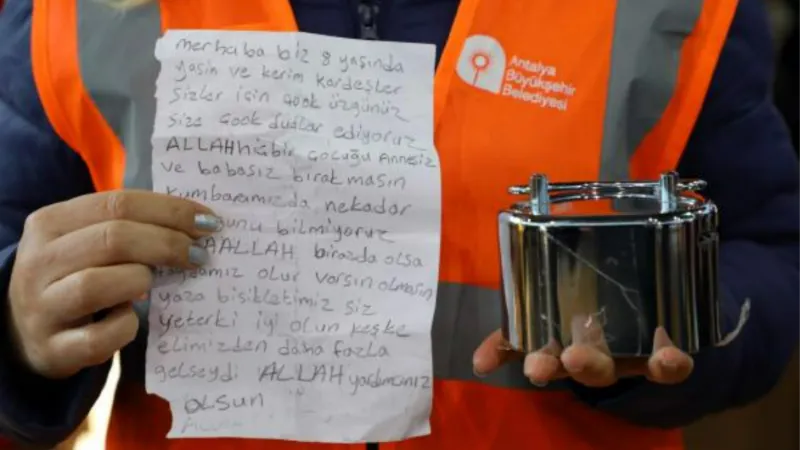 merhaba biz 8 yaşında
yasin ve kerim kardeşler
sizler için Çook üzgünüz
size Çook dualar ediyoruz
ALLAH hiçbir çocuğu Annesiz
ve babasız bırakmasın
kumbaramızda nekadar
bilmiyoruz
ALLAH birazda olsa
faydamız olur varsın olmasın
yaza bisikletimiz siz
yeterki iyi olun keşke
elimizden daha fazla
gelseydi ALLAH yardımcınız
olsun
Antalya
Büyükşehir
Belediyesi